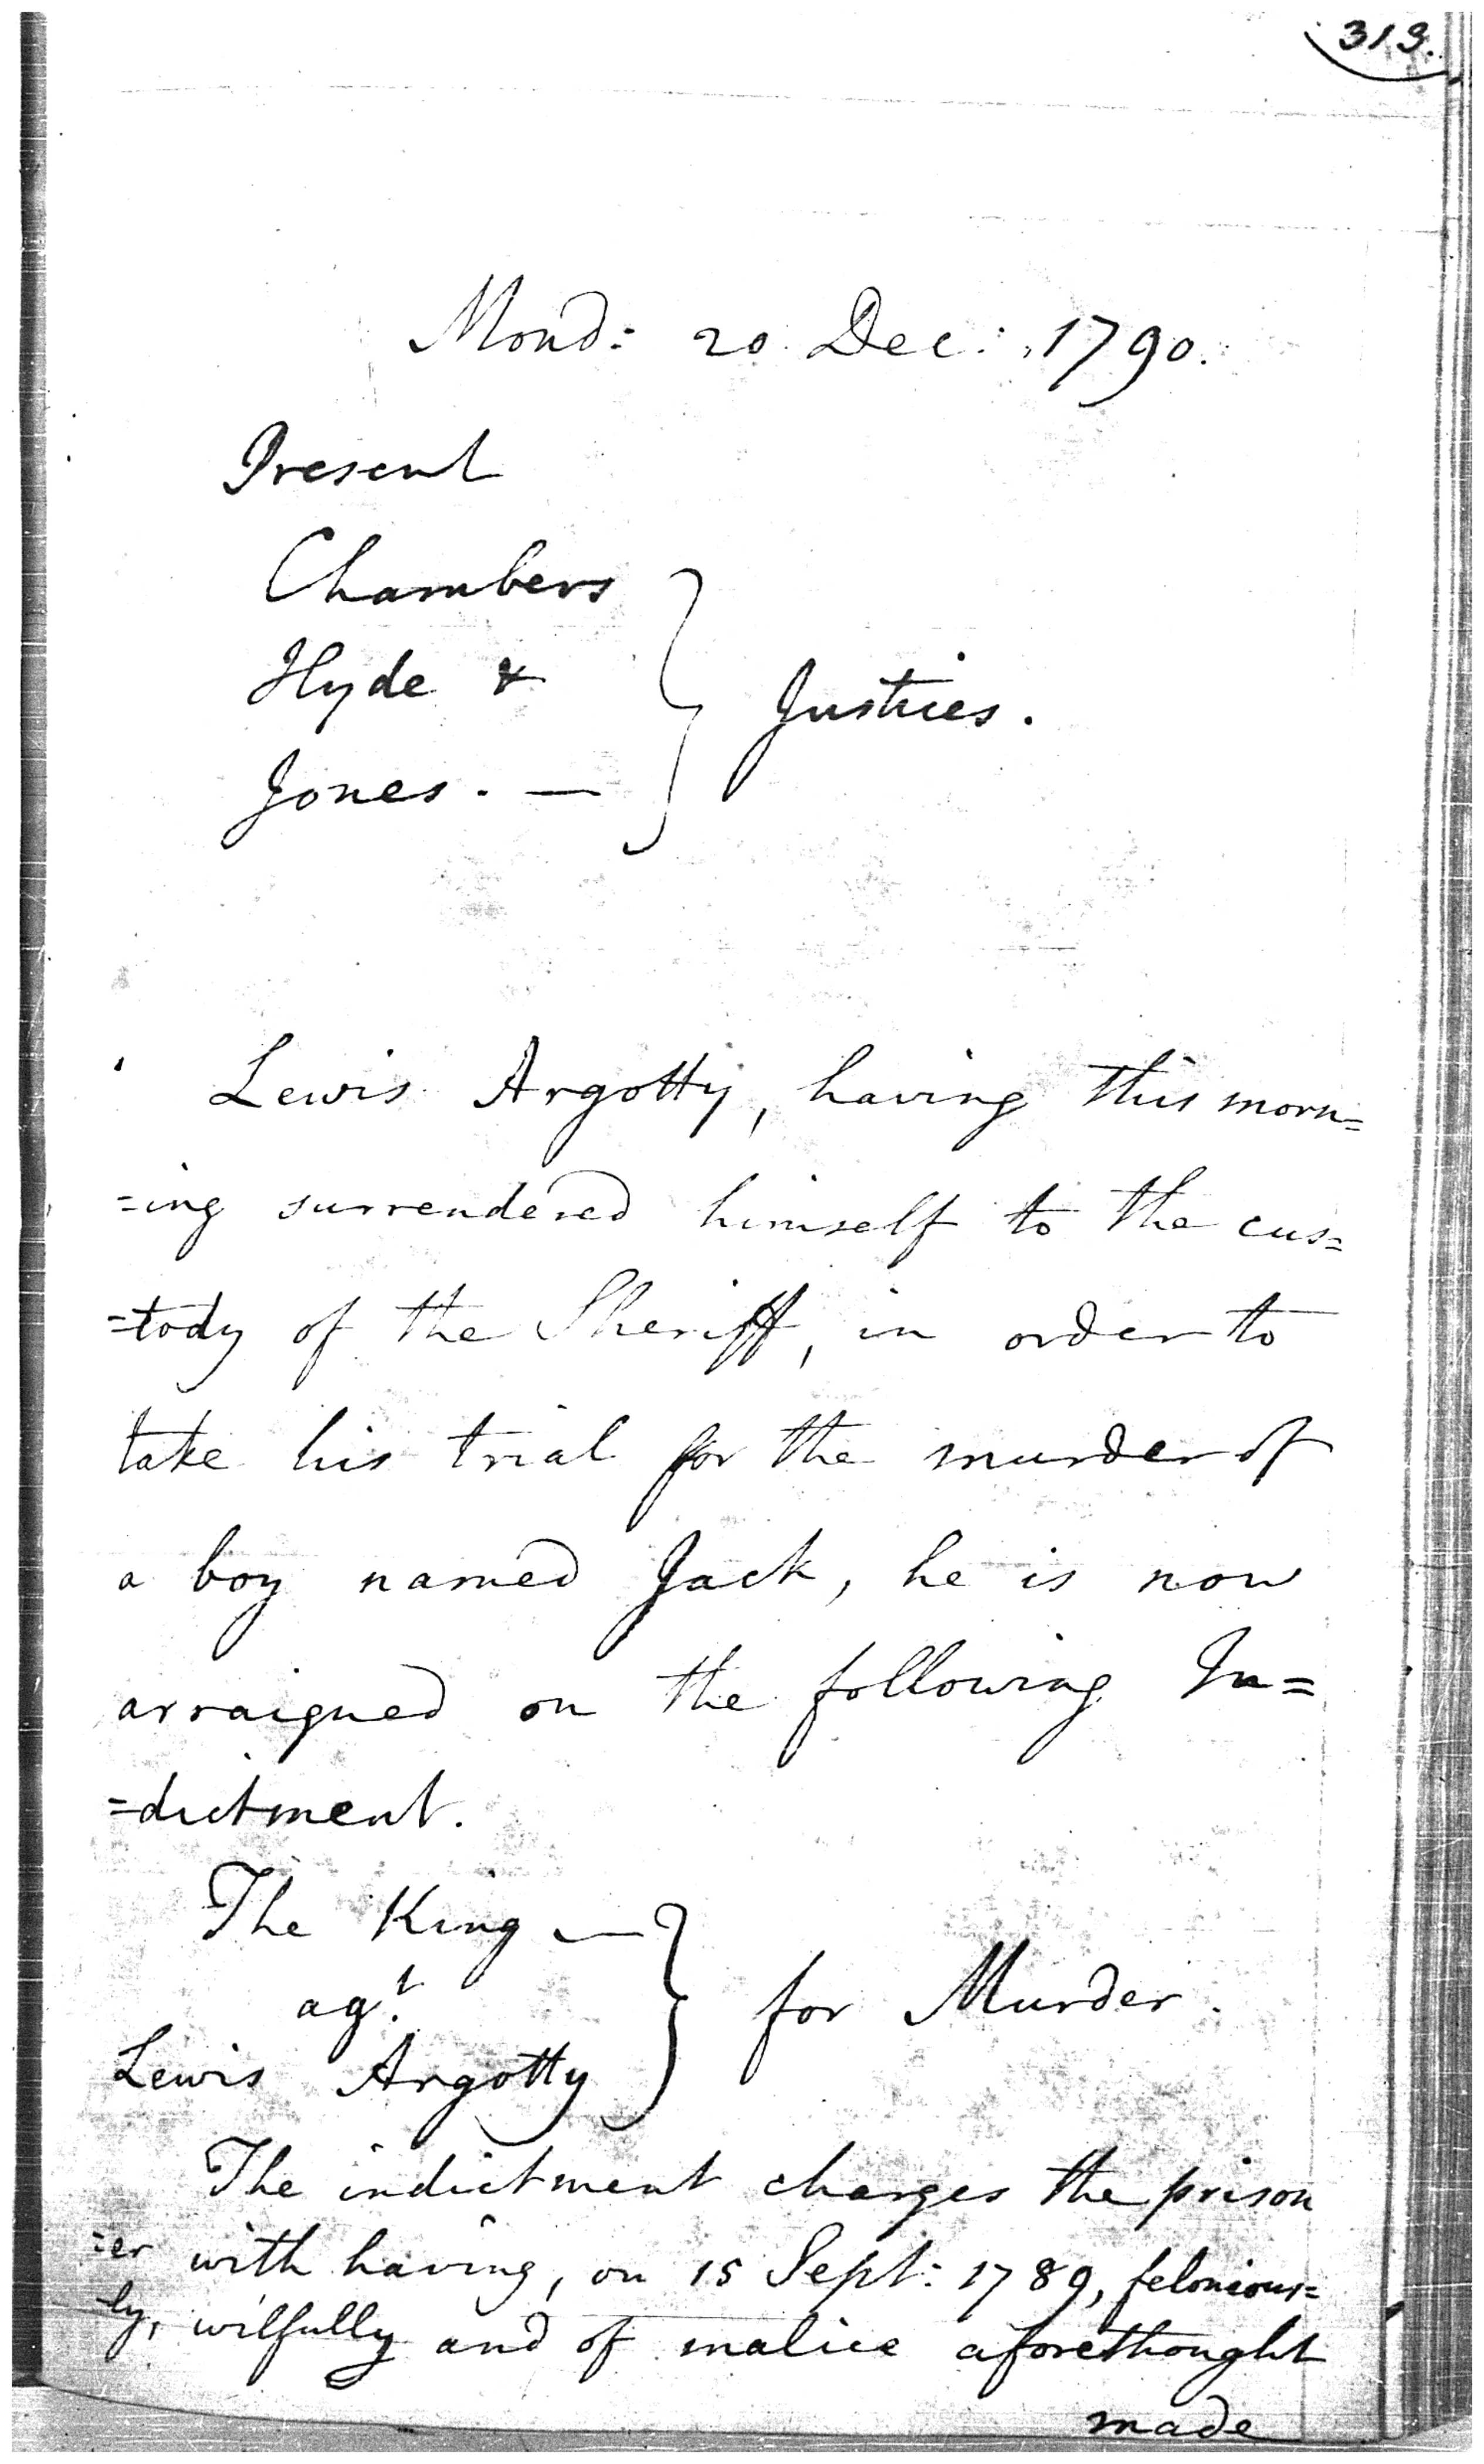 313.
Mond: 20 Dec: 1790.
Present
Chambers
Hyde &
Justices.
Jones. —
Lewis Argotty, having this morn=
=ing surrendered himself to the cus=
=tody of the Sheriff, in order to
take his trial for the murder of
a boy named Jack, he is now
arraigned on the following In=
=dictment.
The King —
agt.
for Murder.
Lewis Argotty
The indictment charges the prison
=er with having, on 15 Sept: 1789, felonious=
ly, wilfully and of malice aforethought
made